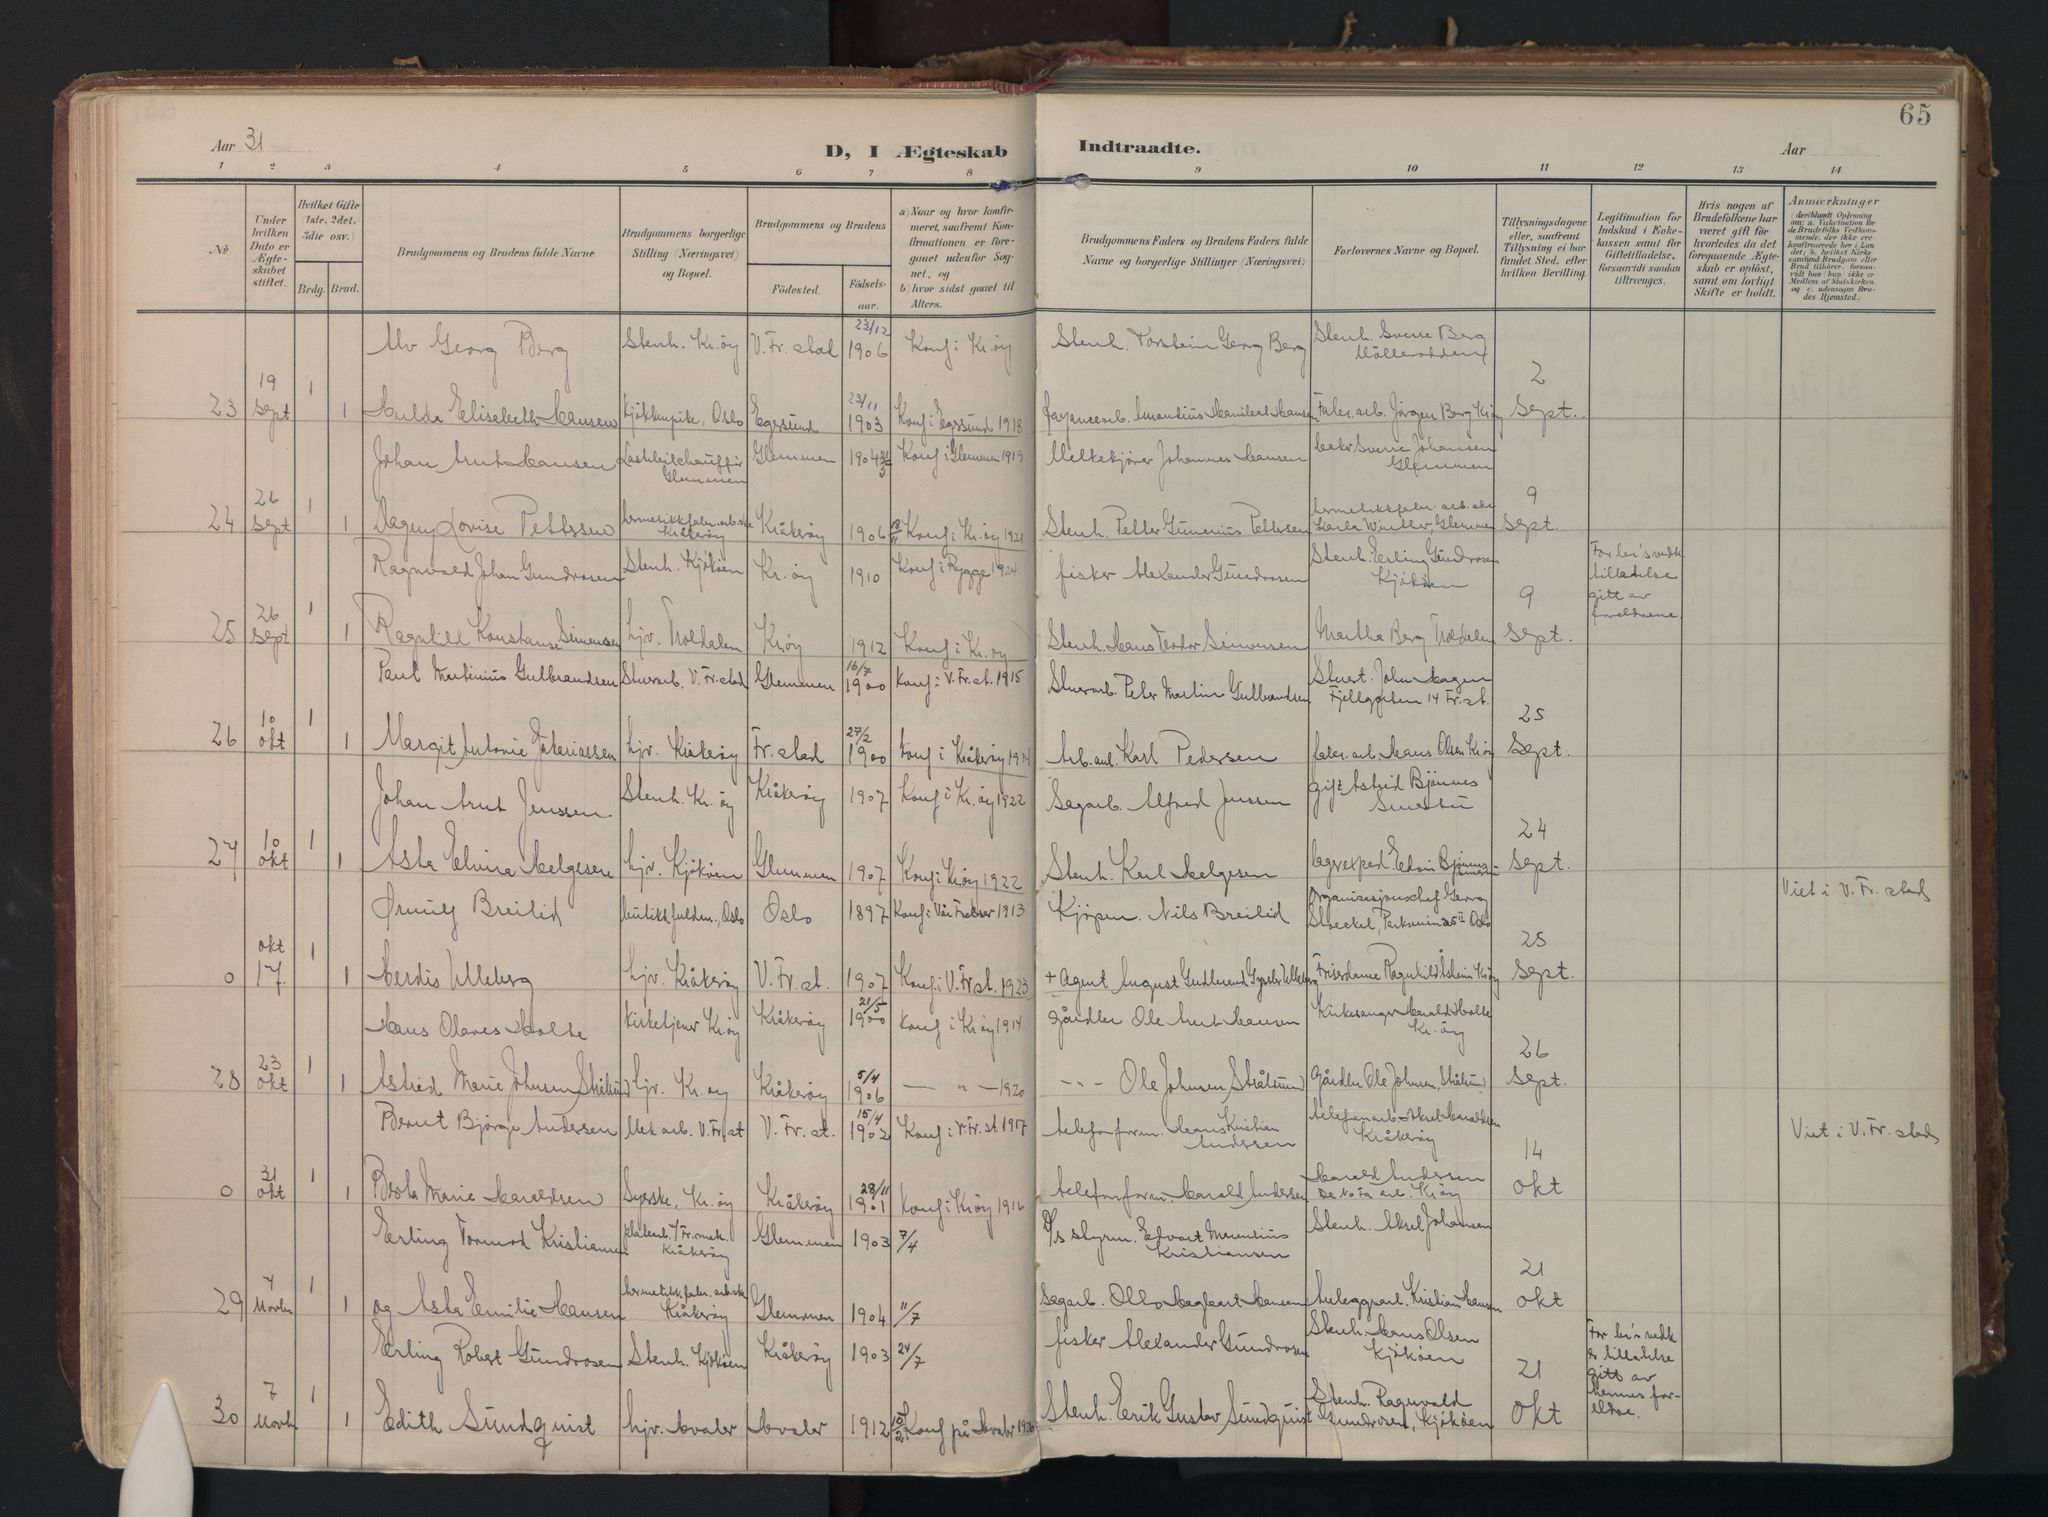 65
Aar 31
D, I Ægteskab Indtraadte.
Aar
1 2 3 4 5 6 7 8 9 10 11 12 13 14
No.
Under hvilken Dato er Ægteskabet stiftet.
Hvilket Gifte (1ste, 2det, 3die osv.)
Brdg. Brud.
Brudgommens og Brudens fulde Navne
Brudgommens borgerlige Stilling (Næringsvei) og Bopæl.
Brudgommens og Brudens
Fødested. Fødselsaar.
a) Naar og hvor konfirmeret, saafremt Konfirmationen er foregaaet udenfor Sognet, og
b) hvor sidst gaaet til Alters.
Brudgommens Faders og Brudens Faders fulde Navne og borgerlige Stillinger (Næringsvei)
Forlovernes Navne og Bopæl.
Tillysningsdagene eller, saafremt Tillysning ei har fundet Sted, efter hvilken Bevilling.
Legitimation for Indskud i Enkekassen samt for Giftetilladelse, forsaavidt saadan tiltrænges.
Hvis nogen af Brudefolkene har været gift før hvorledes da det foregaaende Ægteskab er opløst, samt om lovligt Skifte er holdt.
Anmærkninger
Alv Georg Berg Stenh. Kr.øy V. Fr. stad 23/12 1906 Konf i Kr.øy Stenh. Torstein Georg Berg Stenh. Sverre Berg
23 19 Sept 1 1 Hulda Elisabeth Hansen kjøkkenpike, Oslo Egersund 23/11 1903 Konf i Egersund 1918 Fabr. arb. Jørgen Berg Kr.øy 2 Sept.
Johan Arnt Hansen Lastebilchauffør Glemmen Glemmen 1904 Konf i Glemmen 1919 Melkekjører Johannes Hansen Baker Sverre Johansen Glemmen
24 26 Sept 1 1 Dagny Lovise Pettersen hermetikkfabr. arb.ske Kråkerøy Kråkerøy 1906 Konf i Kr.øy 1921 Stenh. Petter Gunerius Pettersen hermetikkfabr. arb.ske Karla Winther, Glemmen 9 Sept.
Ragnvald Johan Gundrosen Stenh. Kjøkøen Kr.øy 1910 Konf i Rygge 1924 fisker Alexander Gundrosen Stenh. Erling Gundrosen Kjøkøen For br's vedk tilladelse gitt av foreldrene.
25 26 Sept 1 1 Ragnhild Konstanse Simensen hjv. Troldalen Kr.øy 1912 Konf i Kr.øy Stenh. Hans Teodor Simensen Martha Berg Troldalen 9 Sept.
Paul Martinius Gulbrandsen Stuerarb. V. Fr.stad Glemmen 16/7 1900 Konf i V. Fr.st. 1915 Stuerarb. Peter Martin Gulbrandsen John Hagen Fjellgaten 14 Fr.st.
26 10 okt 1 1 Margit Antonie Zakariassen hjv. Kråkerøy Fr. stad 27/2 1900 Konf i Kråkerøy 1914 Arb. Karl Pedersen fabr. arb. Hans Olsen Kr.øy 25 Sept.
Johan Arnt Jenssen Stenh. Kr.øy Kråkerøy 1907 Konf i Kr.øy 1922 Sagarb. Alfred Jenssen gift Astrid Bjønnes
27 10 okt 1 1 Asta Elvira Helgesen hjv. Kjøkøen Glemmen 1907 Konf i Kr.øy 1922 Stenh. Karl Helgesen lagrexped Edvin Bjønnes 24 Sept.
Ørnulf Breilid Oslo Oslo 1897 Konf i Vår Frelser 1913 Kjøpm. Nils Breilid Organisasjonschef Georg Stoeckel, Parkveien 25 II Oslo Viet i V. Fr. stad
0 okt 17. 1 1 Herdis Ulleberg hjv. Kråkerøy V. Fr. st. 1907 Konf i V. Fr. st. 1923 + Agent August Frisørdame Ragnhild Kr.øy 25 Sept.
Hans Olaves Holte Kirketjener Kr.øy Kråkerøy 21/5 1900 Konf i Kr.øy 1914 gårdbr Ole Arnt Hansen Kirkesanger Harald Holte Kr.øy
28 23 okt 1 1 Astrid Marie Johnsen Stråtsund hjv. Kr.øy Kråkerøy 5/4 1906 — " — 1920 — " — Ole Johnsen Stråtsund gårdbr Ole Johnsen, Stråtsund 26 Sept.
Bernt Bjørge Andersen Mek arb. V. Fr.st V. Fr. st. 15/4 1902 Konf i V. Fr. st 1917 telefonform. Hans Kristian Andersen telefonarb. Aksel Haraldsen Kråkerøy Viet i V. Fr. stad
0 31 okt 1 1 Borta Marie Haraldsen Syerske, Kr.øy Kråkerøy 28/11 1901 Konf i Kr.øy 1916 telefonform. Harald Andersen Harald Andersen arb. Kr.øy 14 okt
Erling Tormod Kristiansen Fr. mek. Kråkerøy Glemmen 1903 7/4 D/s styrm. Edvart Kristiansen Stenh. Aksel Johansen
29 7 Novbr 1 1 og Asta Emilie Hansen hermetikkfabr. arb.ske Kråkerøy Glemmen 1904 11/7 Sagarb. Hansen Anleggsarb. Kristian Hansen 21 okt
Erling Robert Gundrosen Stenh. Kjøkøen Kråkerøy 1903 24/7 fisker Alexander Gundrosen Stenh. Hans Olsen Kjøkøen For br's vedk er tilladelse gitt av hennes foreldre.
30 7 Novbr 1 1 Edith Sundquist hjv. Hvaler Hvaler 1912 Konf på Hvaler 1926 Stenh. Erik Gustav Sundquist Stenh. Ragnvald Gundrosen, Kjøkøen 21 okt